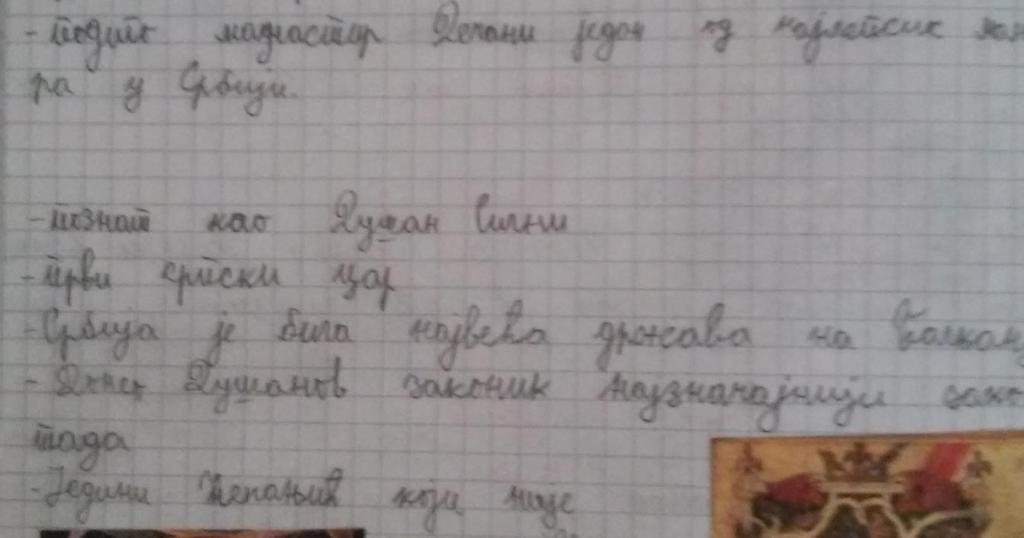 - подиже манастир Дечани један од најлепших ман
ра у Србији.
- познат као Душан Силни
- први српски цар
- Србија је била највећа држава на Балкану
- Донет Душанов законик најзначајнији
тада
- Једини Немањић који није